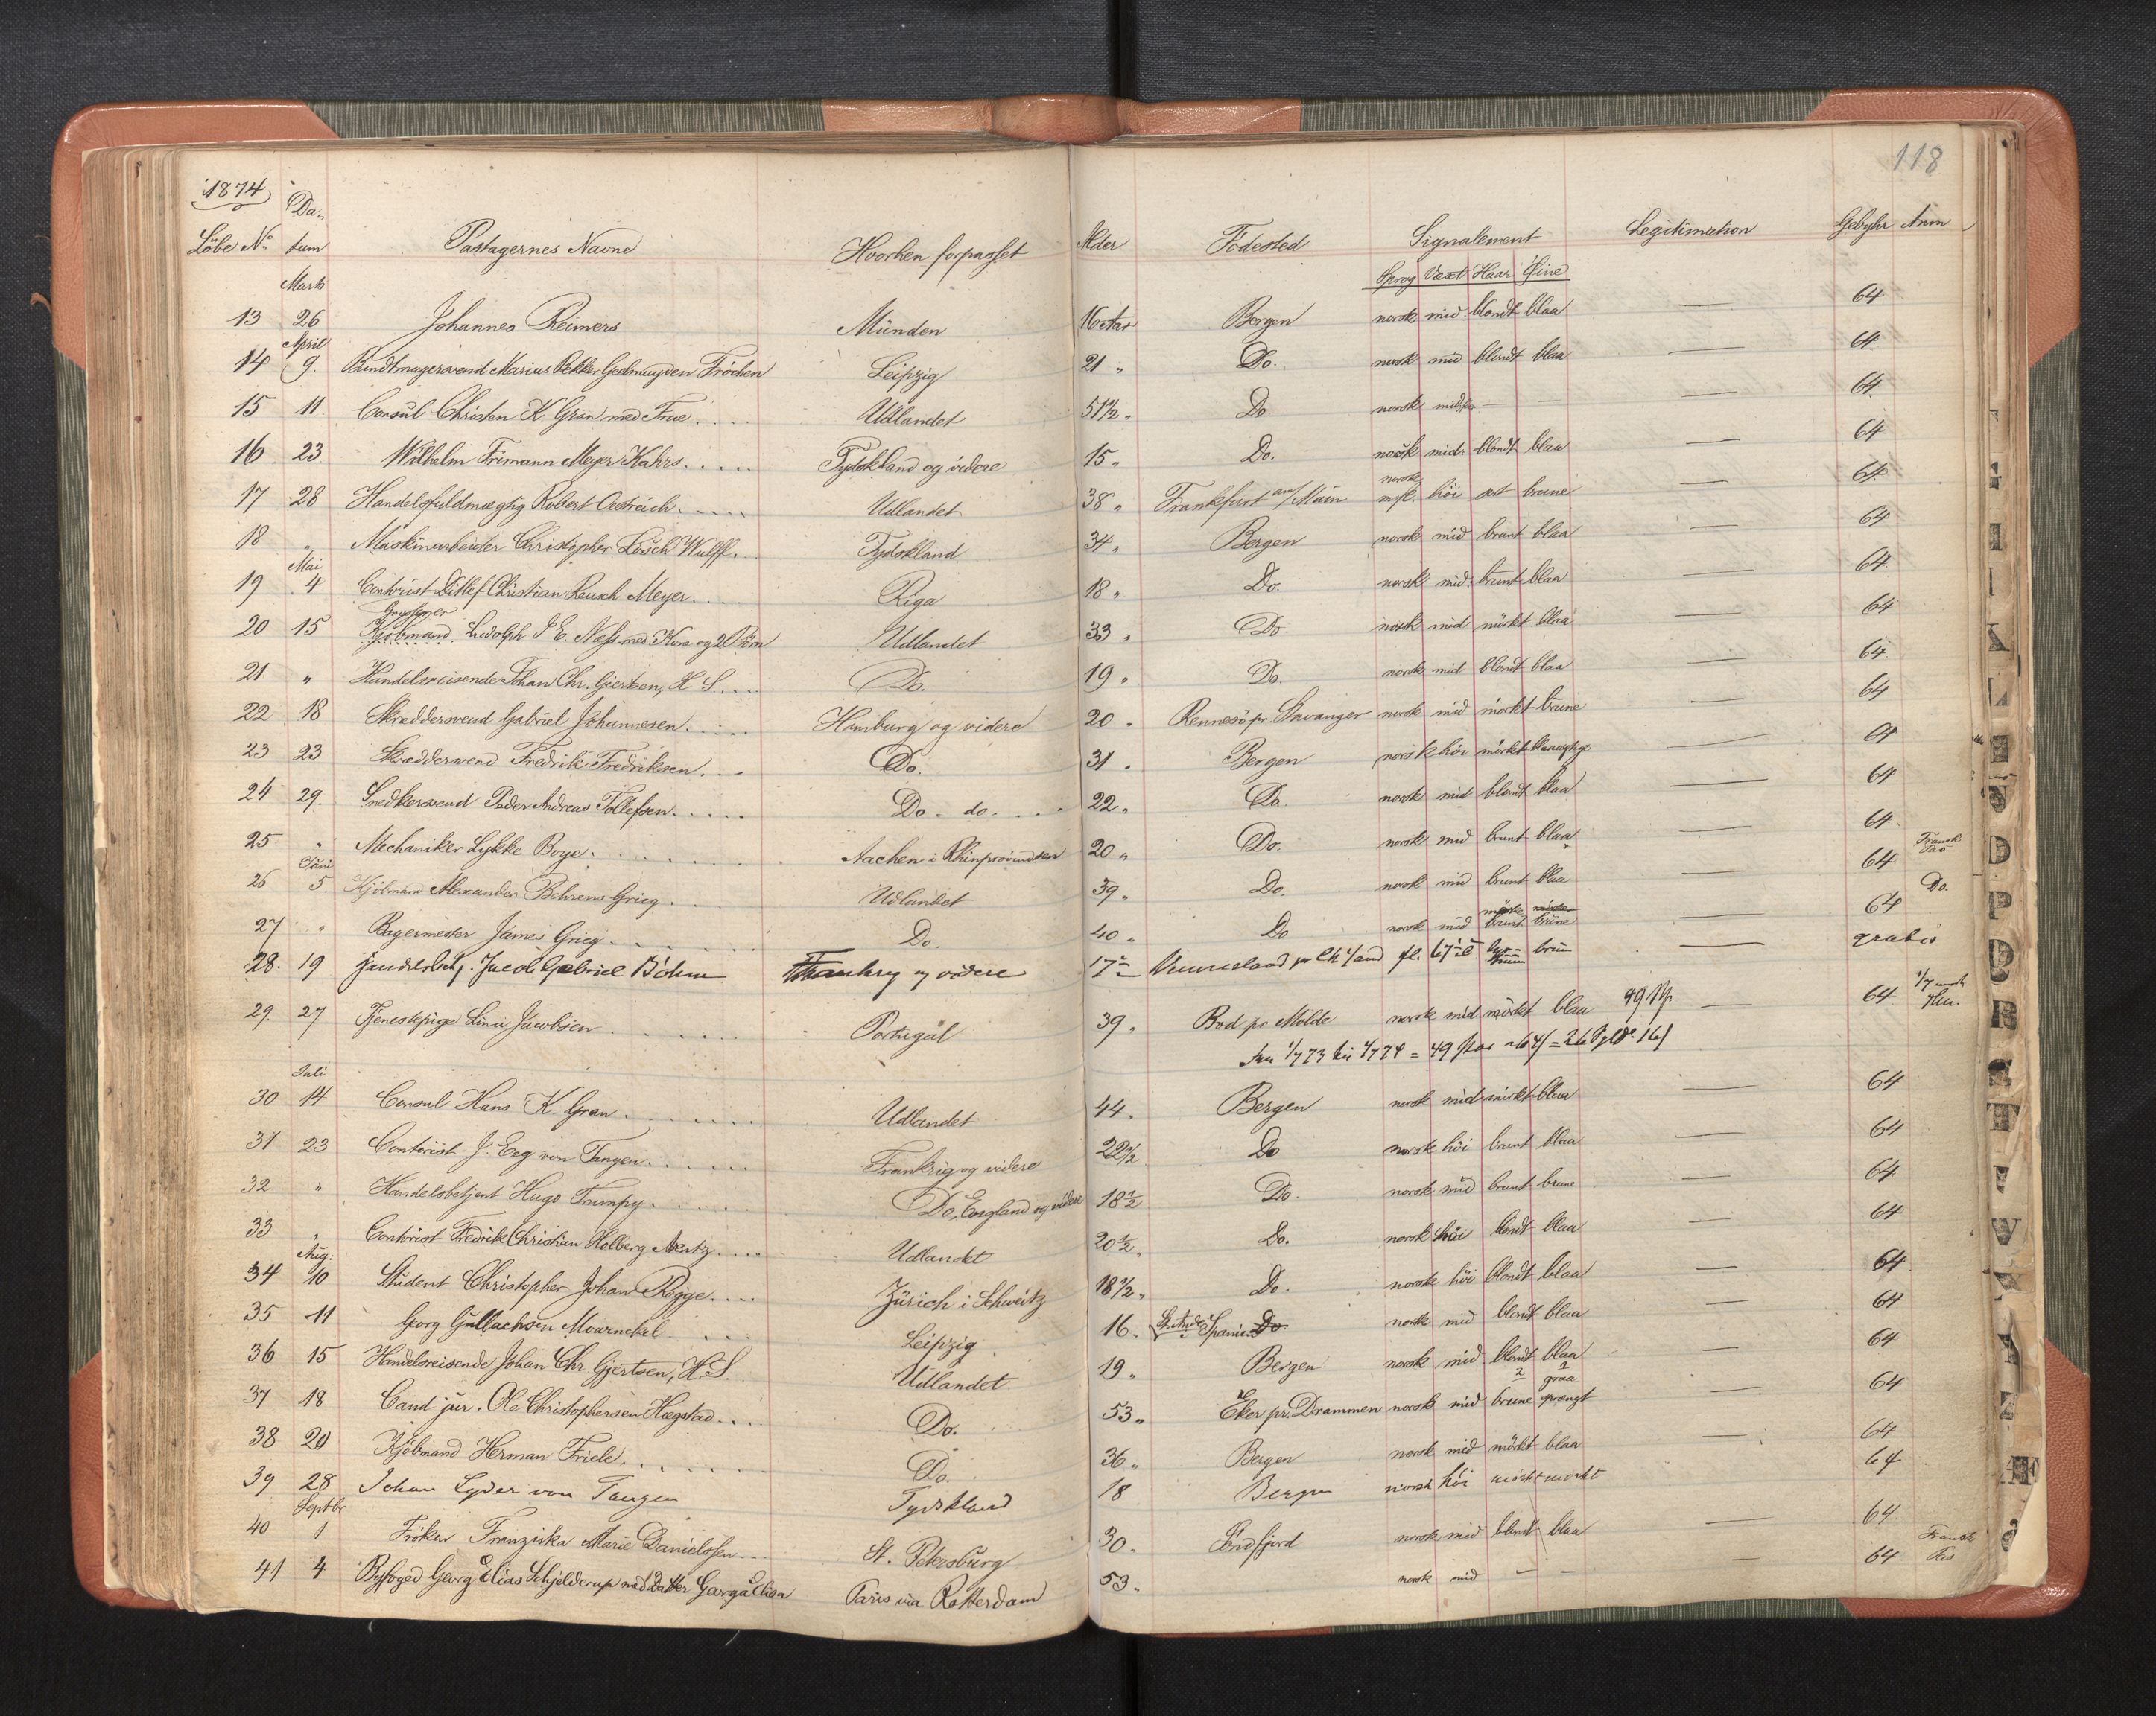 118
1874
Da-
Löbe No. tum Passagernes Navne Hvorhen forpasset Alder Födested Signalement Legitimation Gebyhr Anm
Sprog Væxt Haar Øine
Marts
13 26 Johannes Reimers Münden 16 Aar Bergen norsk mid blondt blaa — 64
April
14 9. Bundtmagersvend Marius Geelmuyden Leipzig 21 " Do. norsk mid blondt blaa — 64
15 11 Consul Christen K Gran med Frue Udlandet 51½ " Do norsk — — — 64
16 23 Wilhelm Frimann Meyer Kahrs Tydskland og videre 15 " Do. norsk mid. blondt blaa — 64
norsk
17 28 Handelsfuldmægtig Robert Oestreich Udlandet 38 " Frankfurt am/Main höi brune — 64
18 " Maskinarbeider Christopher Lösch Wulff Tydskland 34 " Bergen norsk mid brunt blaa — 64
Mai
19 4 Contorist Ditlef Christian Reusch Meyer Riga 18 " Do. norsk mid. brunt blaa — 64
Grosserer
20 15 Kjöbmand Ludolph J. E. Næss med Kone og 2 Börn Udlandet 33 " Do. norsk mid mörkt blaa — 64
21 " Handelsreisende Johan Chr. Gjertsen, H. S. Do. 19 " Do. norsk mid blondt blaa — 64
22 18 Skræddersvend Gabriel Johannesen Hamburg og videre 20 " Rennesö pr. Stavanger norsk mid mörkt brune — 64
23 23 Skræddersvend Fredrik Fredriksen Do. 31 " Bergen norsk höi mörkt blaaagtige — 64
24 29. Snedkersvend Peder Andreas Tollefsen Do. do. 22 " Do. norsk mid blondt blaa — 64
25 " Mechaniker Lykke Boye Aachen i Rhinprovindsen 20 " Do. norsk mid brunt blaa — 64
Juni
26 5 Kjöbmand Alexander Behrens Grieg Udlandet 39 " Do. norsk mid brunt blaa — 64 Fransk Pas
mörke
27 " Bagermester James Grieg Do. 40 " Do norsk mid brunt brune — 64 Do.
28. 19 Jacob Gabriel Böhm og videre 17 brun — gratis
29. 27 Tjenestepige Lina Jacobsen Portugal 39 " Bod pr Molde norsk mid mörkt blaa — 64
1/7 73 til 1/7 74 = 49
Juli
30 14 Consul Hans K. Gran Udlandet 44 " Bergen norsk mid mörkt blaa — 64
31 23 Contorist J. Eeg von Tangen Frankrig og videre 22½ Do norsk höi brunt blaa — 64
32 " Handelsbetjent Hugo Trumpy Do, England og videre 18½ Do. norsk mid brunt brune — 64
33 " Contorist Fredrik Christian Holberg Arentz Udlandet 20½ " Do. norsk höi blondt blaa — 64
Aug:
34 10 Student Christopher Johan Rogge Zürich i Schweitz 18½ " Do. norsk höi blondt blaa — 64
35 11 Georg Gullachsen Mowinckel Leipzig 16 " St. Ander i Spanien Do. norsk mid blondt blaa — 64
36 15 Handelsreisende Johan Chr Gjertsen, H. S. Udlandet 19 " Bergen norsk mid blondt blaa — 64
graa
37 18 Cand jur. Ole Christophersen Hægstad Do. 53 " Eker pr. Drammen norsk mid brune sprængt — 64
38 20 Kjöbmand Herman Friele Do. 36 " Bergen norsk mid mörkt blaa — 64
39 28 Johan Lyder von Tangen Tydskland 18 Bergen norsk höi mörkt mörkt 64
Septbr
40 1 Fröken Franziska Marie Danielssen St. Petersburg 30 " Söndfjord norsk mid blondt blaa — 64
41 4 Byfoged Georg Elias Schjelderup med Datter Georga Elisa Paris via Rotterdam 53 " norsk mid — — — 64 Fransk Pas